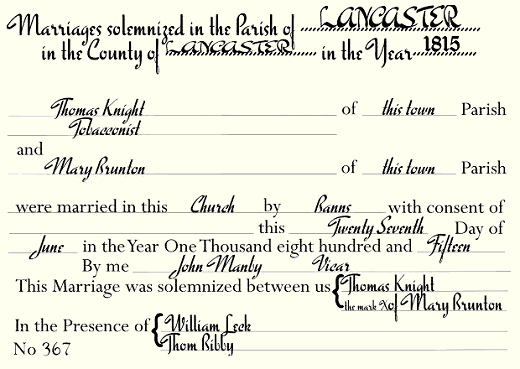 Marriages solemnized in the Parish of LANCASTER
in the County of LANCASTER in the Year 1815
Thomas Knight of this town Parish
Tobacconist
and
Mary Brunton of this town Parish
were married in this Church by Banns with consent of
this Twenty Seventh Day of
June in the Year One Thousand eight hundred and Fifteen
By me John Manby Vicar
This Marriage was solemnized between us { Thomas Knight
the mark X of Mary Brunton
In the Presence of { William Leek
No 367 Thom Bibby